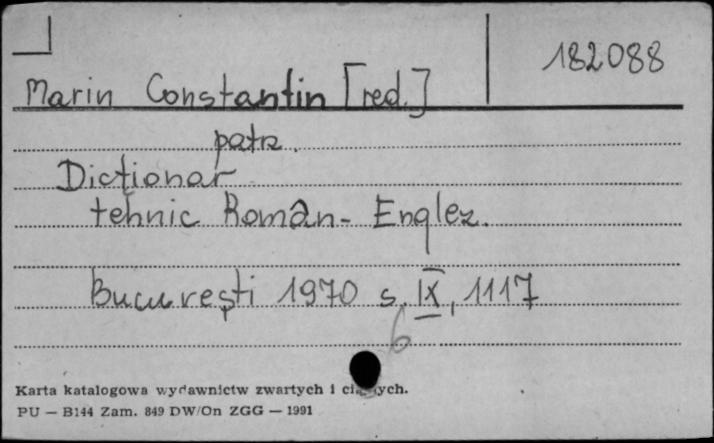 182088
Marin Constantin [red.]
patrz.
Dicţionar
tehnic Român-Englez.
Bucureşti 1970 s. IX, 1117
6
Karta katalogowa wydawnictw zwartych i ciągłych.
PU — B144 Zam. 849 DW/On ZGG — 1991